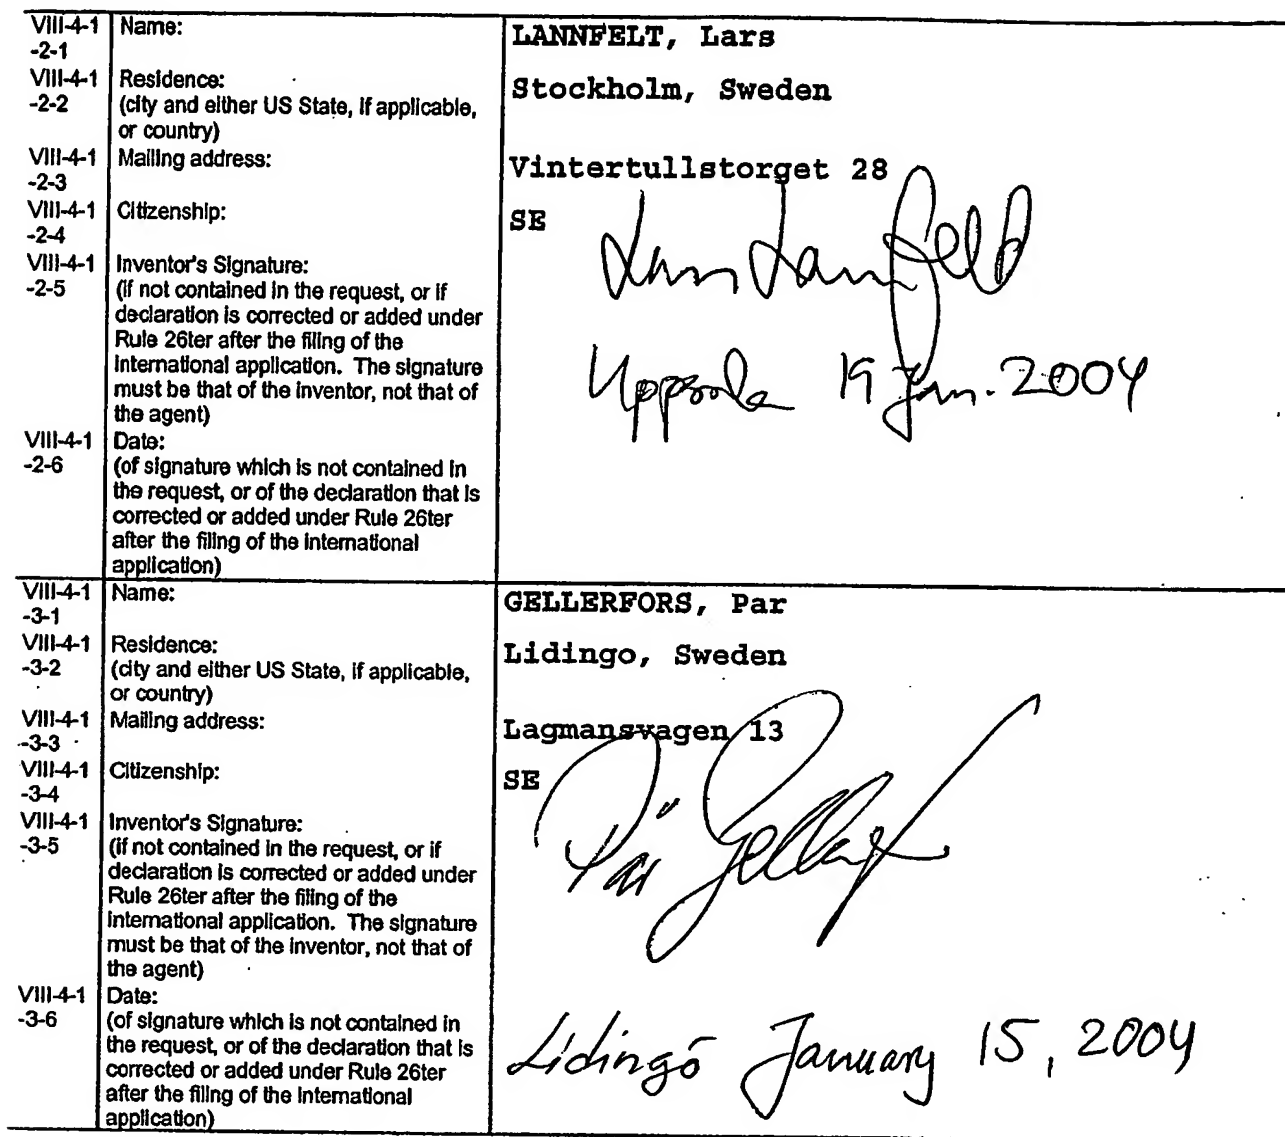 VIII-4-1 Name: LANNFELT, Lars
-2-1
VIII-4-1 Residence: Stockholm, Sweden
-2-2 (city and either US State, if applicable,
or country)
VIII-4-1 Mailing address: Vintertullstorget 28
-2-3
VIII-4-1 Citizenship: SE
-2-4
Lars Lannfelt
VIII-4-1 Inventor's Signature:
-2-5 (if not contained in the request, or if
declaration is corrected or added under
Rule 26ter after the filing of the
international application. The signature
must be that of the inventor, not that of
the agent)
Uppsala 19 Jan. 2004
VIII-4-1 Date:
-2-6 (of signature which is not contained in
the request, or of the declaration that is
corrected or added under Rule 26ter
after the filing of the international
application)
VIII-4-1 Name: GELLERFORS, Par
-3-1
VIII-4-1 Residence: Lidingo, Sweden
-3-2 (city and either US State, if applicable,
or country)
VIII-4-1 Mailing address: Lagmansvagen 13
-3-3
VIII-4-1 Citizenship: SE
-3-4
VIII-4-1 Inventor's Signature:
-3-5 (if not contained in the request, or if
declaration is corrected or added under
Rule 26ter after the filing of the
international application. The signature
must be that of the inventor, not that of
the agent)
Pär
VIII-4-1 Date:
-3-6 (of signature which is not contained in
the request, or of the declaration that is
corrected or added under Rule 26ter
after the filing of the international
application)
Lidingö January 15, 2004